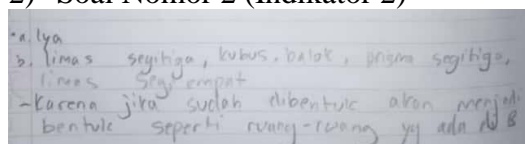 2) Soal Nomor 2 (Indikator 2)
a. Iya
b. limas segitiga, kubus, balok, prisma segitiga,
limas segi empat
- Karena jika sudah dibentuk akan menjadi
bentuk seperti ruang-ruang yg ada di B